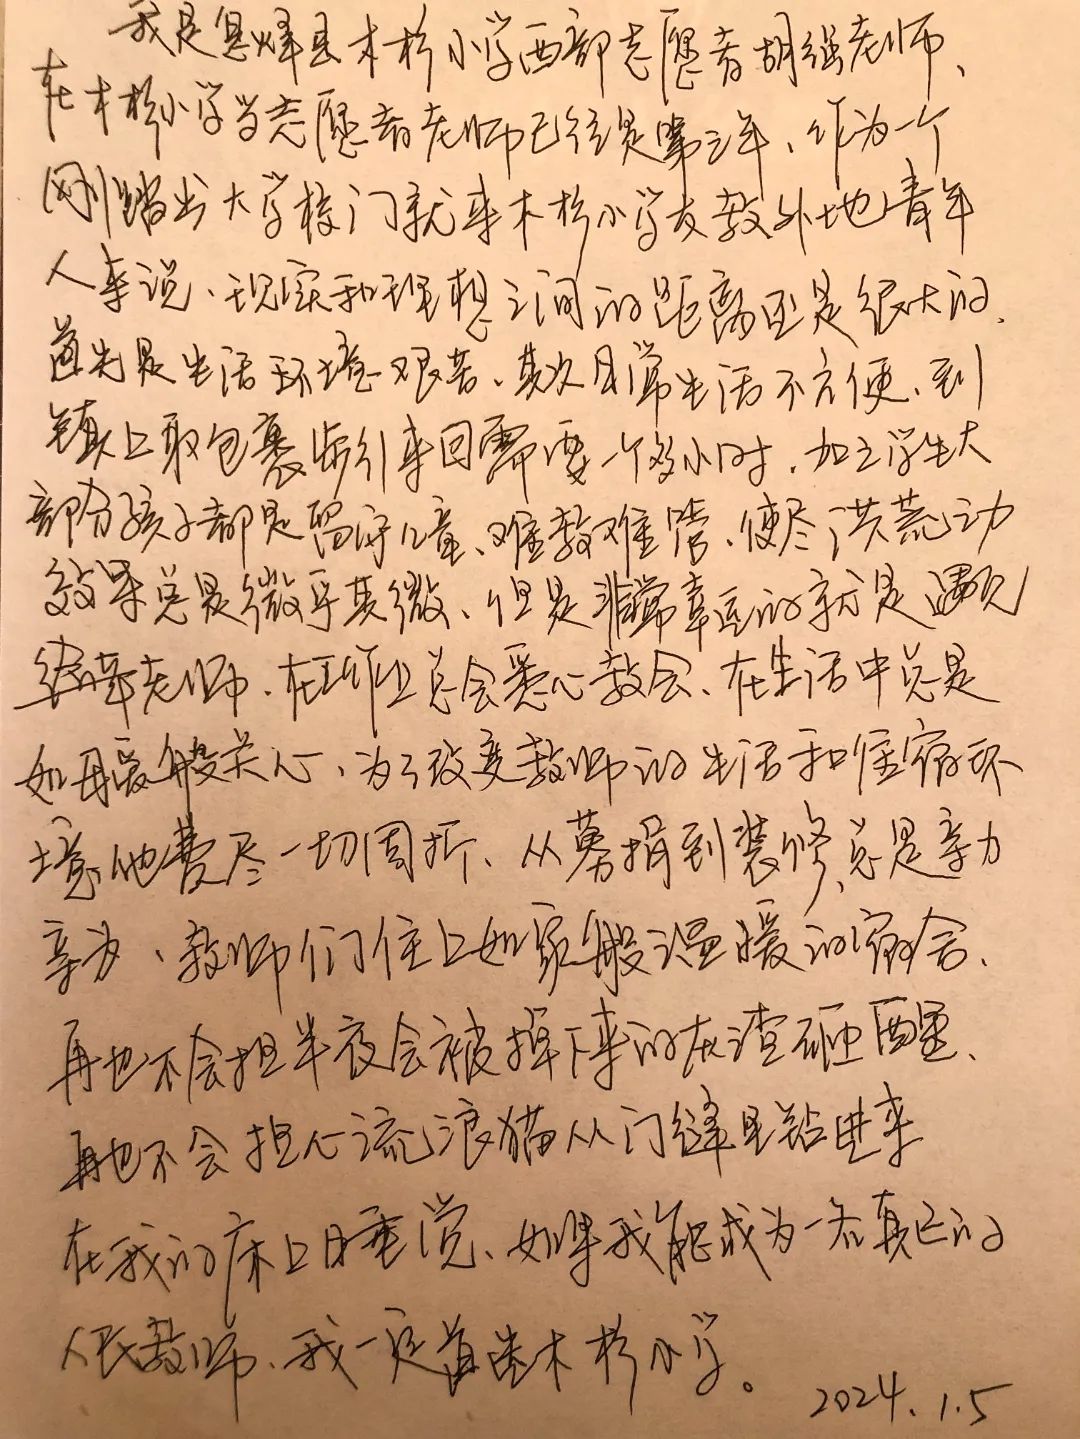 我是息烽县木杉小学西部志愿者胡强老师、
在木杉小学当志愿者老师已经是第二年、作为一个
刚踏出大学校门就来木杉小学支教外地青年
人来说、现实和理想之间的距离还是很大的、
首先是生活环境艰苦、其次日常生活不方便、到
镇上取包裹步行来回需要一个多小时、加之学生大
部分孩子都是留守儿童、难教难管、使尽洪荒之力
效果总是微乎其微、但是非常幸运的就是遇见
老师、在工作上总会悉心教会、在生活中总是
如母爱般关心、为了改变教师的生活和住宿环
境他费尽一切周折、从募捐到装修、总是亲力
亲为、教师们住上如家般温暖的宿舍、
再也不会担半夜会被掉下来的灰渣砸醒、
再也不会担心流浪猫从门缝里钻进来
在我的床上睡觉、如果我能成为一名真正的
人民教师、我一定首选木杉小学。
2024.1.5